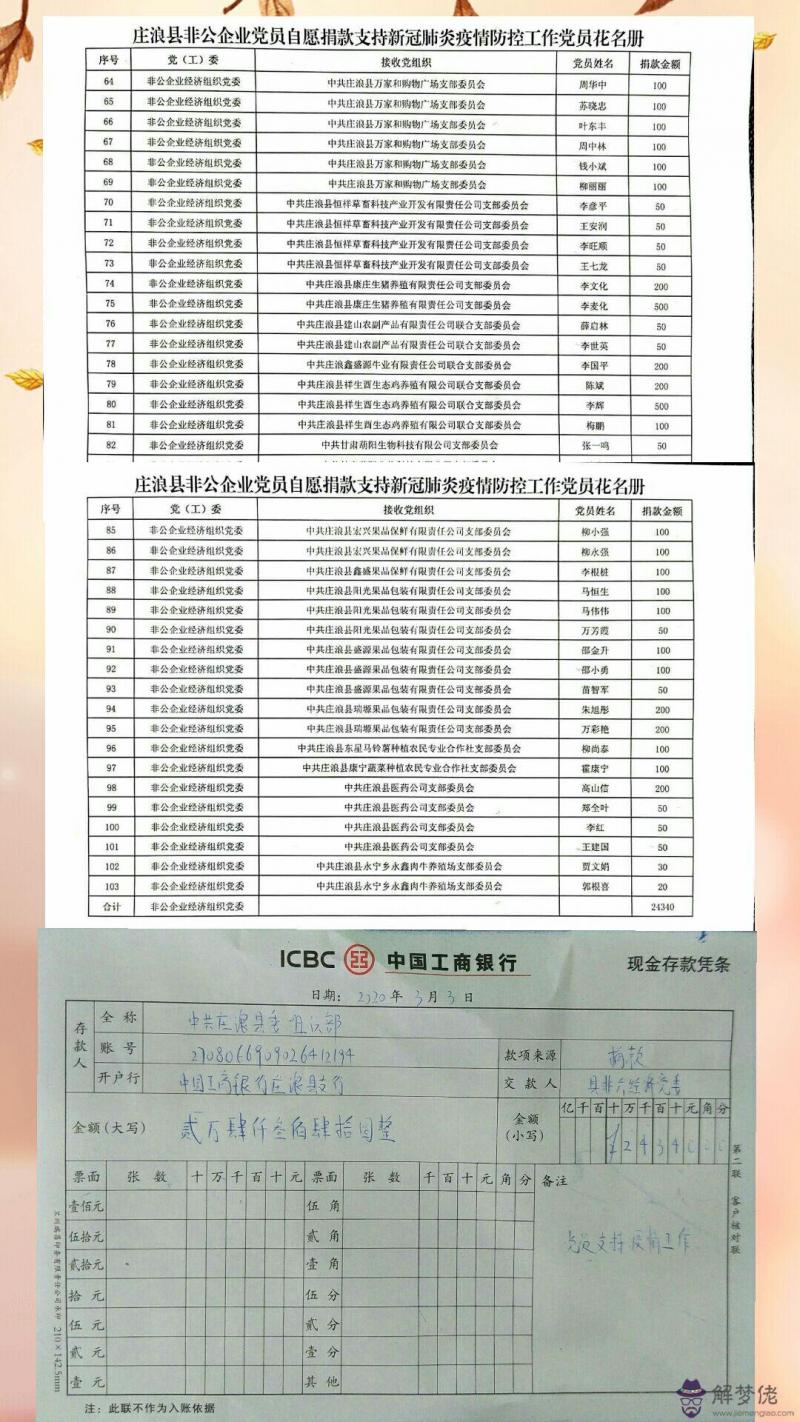 庄浪县非公企业党员自愿捐款支持新冠肺炎疫情防控工作党员花名册
序号 党（工）委 接收党组织 党员姓名 捐款金额
64 非公企业经济组织党委 中共庄浪县万家和购物广场支部委员会 周华中 100
65 非公企业经济组织党委 中共庄浪县万家和购物广场支部委员会 苏晓忠 100
66 非公企业经济组织党委 中共庄浪县万家和购物广场支部委员会 叶东丰 100
67 非公企业经济组织党委 中共庄浪县万家和购物广场支部委员会 周中林 100
68 非公企业经济组织党委 中共庄浪县万家和购物广场支部委员会 钱小斌 100
69 非公企业经济组织党委 中共庄浪县万家和购物广场支部委员会 柳丽丽 100
70 非公企业经济组织党委 中共庄浪县恒祥草畜科技产业开发有限责任公司支部委员会 李彦平 50
71 非公企业经济组织党委 中共庄浪县恒祥草畜科技产业开发有限责任公司支部委员会 王安润 50
72 非公企业经济组织党委 中共庄浪县恒祥草畜科技产业开发有限责任公司支部委员会 李旺顺 50
73 非公企业经济组织党委 中共庄浪县恒祥草畜科技产业开发有限责任公司支部委员会 王七龙 50
74 非公企业经济组织党委 中共庄浪县康庄生猪养殖有限责任公司支部委员会 李文化 200
75 非公企业经济组织党委 中共庄浪县康庄生猪养殖有限责任公司支部委员会 李麦化 500
76 非公企业经济组织党委 中共庄浪县建山农副产品有限责任公司联合支部委员会 薛启林 50
77 非公企业经济组织党委 中共庄浪县建山农副产品有限责任公司联合支部委员会 李世英 50
78 非公企业经济组织党委 中共庄浪鑫盛源牛业有限责任公司联合支部委员会 李国平 200
79 非公企业经济组织党委 中共庄浪县祥生酉生态鸡养殖有限公司联合支部委员会 陈斌 200
80 非公企业经济组织党委 中共庄浪县祥生酉生态鸡养殖有限公司联合支部委员会 李辉 500
81 非公企业经济组织党委 中共庄浪县祥生酉生态鸡养殖有限公司联合支部委员会 梅鹏 100
82 非公企业经济组织党委 中共甘肃萌阳生物科技有限公司支部委员会 张一鸣 50
庄浪县非公企业党员自愿捐款支持新冠肺炎疫情防控工作党员花名册
序号 党（工）委 接收党组织 党员姓名 捐款金额
85 非公企业经济组织党委 中共庄浪县宏兴果品保鲜有限责任公司支部委员会 柳小强 100
86 非公企业经济组织党委 中共庄浪县宏兴果品保鲜有限责任公司支部委员会 柳永强 100
87 非公企业经济组织党委 中共庄浪县鑫盛果品保鲜有限责任公司支部委员会 李根桩 100
88 非公企业经济组织党委 中共庄浪县阳光果品包装有限责任公司支部委员会 马恒生 100
89 非公企业经济组织党委 中共庄浪县阳光果品包装有限责任公司支部委员会 马伟伟 100
90 非公企业经济组织党委 中共庄浪县阳光果品包装有限责任公司支部委员会 万芳霞 50
91 非公企业经济组织党委 中共庄浪县盛源果品包装有限责任公司支部委员会 邵金升 100
92 非公企业经济组织党委 中共庄浪县盛源果品包装有限责任公司支部委员会 邵小勇 100
93 非公企业经济组织党委 中共庄浪县盛源果品包装有限责任公司支部委员会 苗智军 50
94 非公企业经济组织党委 中共庄浪县瑞塬果品包装有限责任公司支部委员会 朱旭彤 200
95 非公企业经济组织党委 中共庄浪县瑞塬果品包装有限责任公司支部委员会 万彩艳 200
96 非公企业经济组织党委 中共庄浪县东星马铃薯种植农民专业合作社支部委员会 柳尚泰 100
97 非公企业经济组织党委 中共庄浪县康宁蔬菜种植农民专业合作社支部委员会 霍康宁 100
98 非公企业经济组织党委 中共庄浪县医药公司支部委员会 高山信 200
99 非公企业经济组织党委 中共庄浪县医药公司支部委员会 郑全叶 50
100 非公企业经济组织党委 中共庄浪县医药公司支部委员会 李红 50
101 非公企业经济组织党委 中共庄浪县医药公司支部委员会 王建国 50
102 非公企业经济组织党委 中共庄浪县永宁乡永鑫肉牛养殖场支部委员会 贾文娟 30
103 非公企业经济组织党委 中共庄浪县永宁乡永鑫肉牛养殖场支部委员会 郭根喜 20
合计 非公企业经济组织党委 24340
ICBC 中国工商银行 现金存款凭条
日期： 2020 年 3 月 3 日
存款人 全称 中共庄浪县委组织部
账号 2708066909026412194 款项来源 捐款
开户行 中国工商银行庄浪县支行 交款人 县非公经济党委
金额（大写） 贰万肆仟叁佰肆拾圆整 金额（小写） 亿千百十万千百十元角分
票面 张数 十万千百十元 票面 张数 千百十元角分 备注
壹佰元 伍角
伍拾元 贰角
贰拾元 壹角
拾元 伍分
伍元 贰分
贰元 壹分
壹元 其他
党员支持疫情工作
第二联 客户核对联
210×142.5mm
注：此联不作为入账依据
解梦佬
www.jiemenglao.com